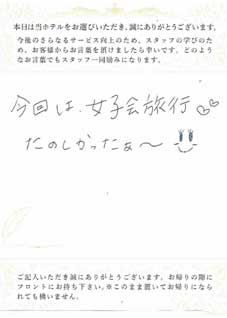 本日は当ホテルをお選びいただき、誠にありがとうございます。
今後のさらなるサービス向上のため、スタッフの学びのため、お客様からお言葉を頂けましたら幸いです。どのようなお言葉でもスタッフ一同励みになります。
今回は、女子会旅行♡♡
たのしかったぁ〜
ご記入いただき誠にありがとうございます。お帰りの際に
フロントにお持ち下さい。※このまま置いてお帰りになら
れても構いません。